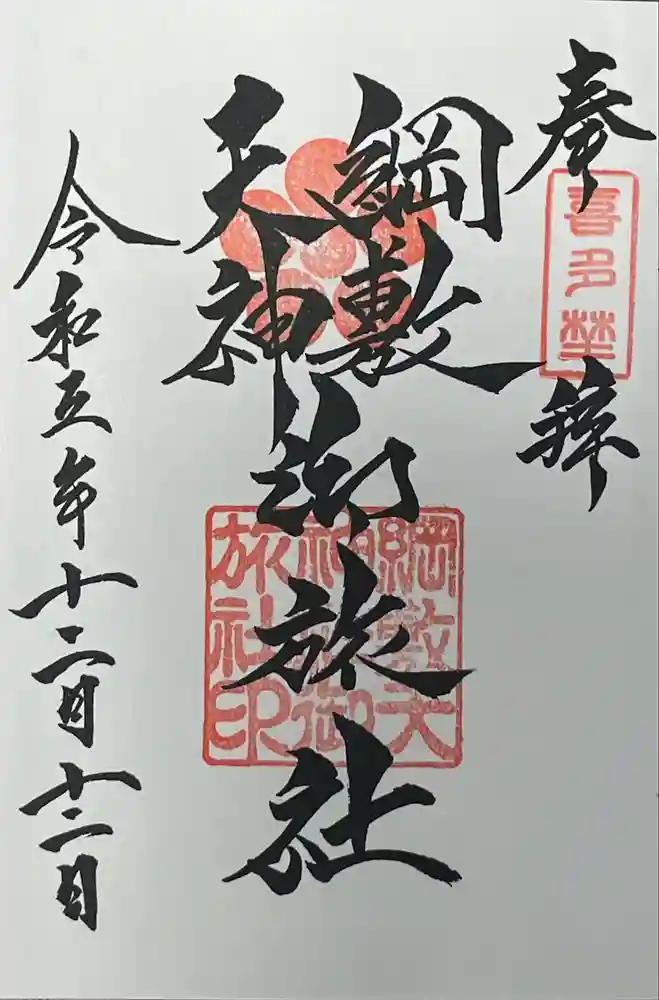 奉拝
喜多埜
綱敷
天神
御旅社
綱敷天
神御
旅社印
令和五年十二月十二日